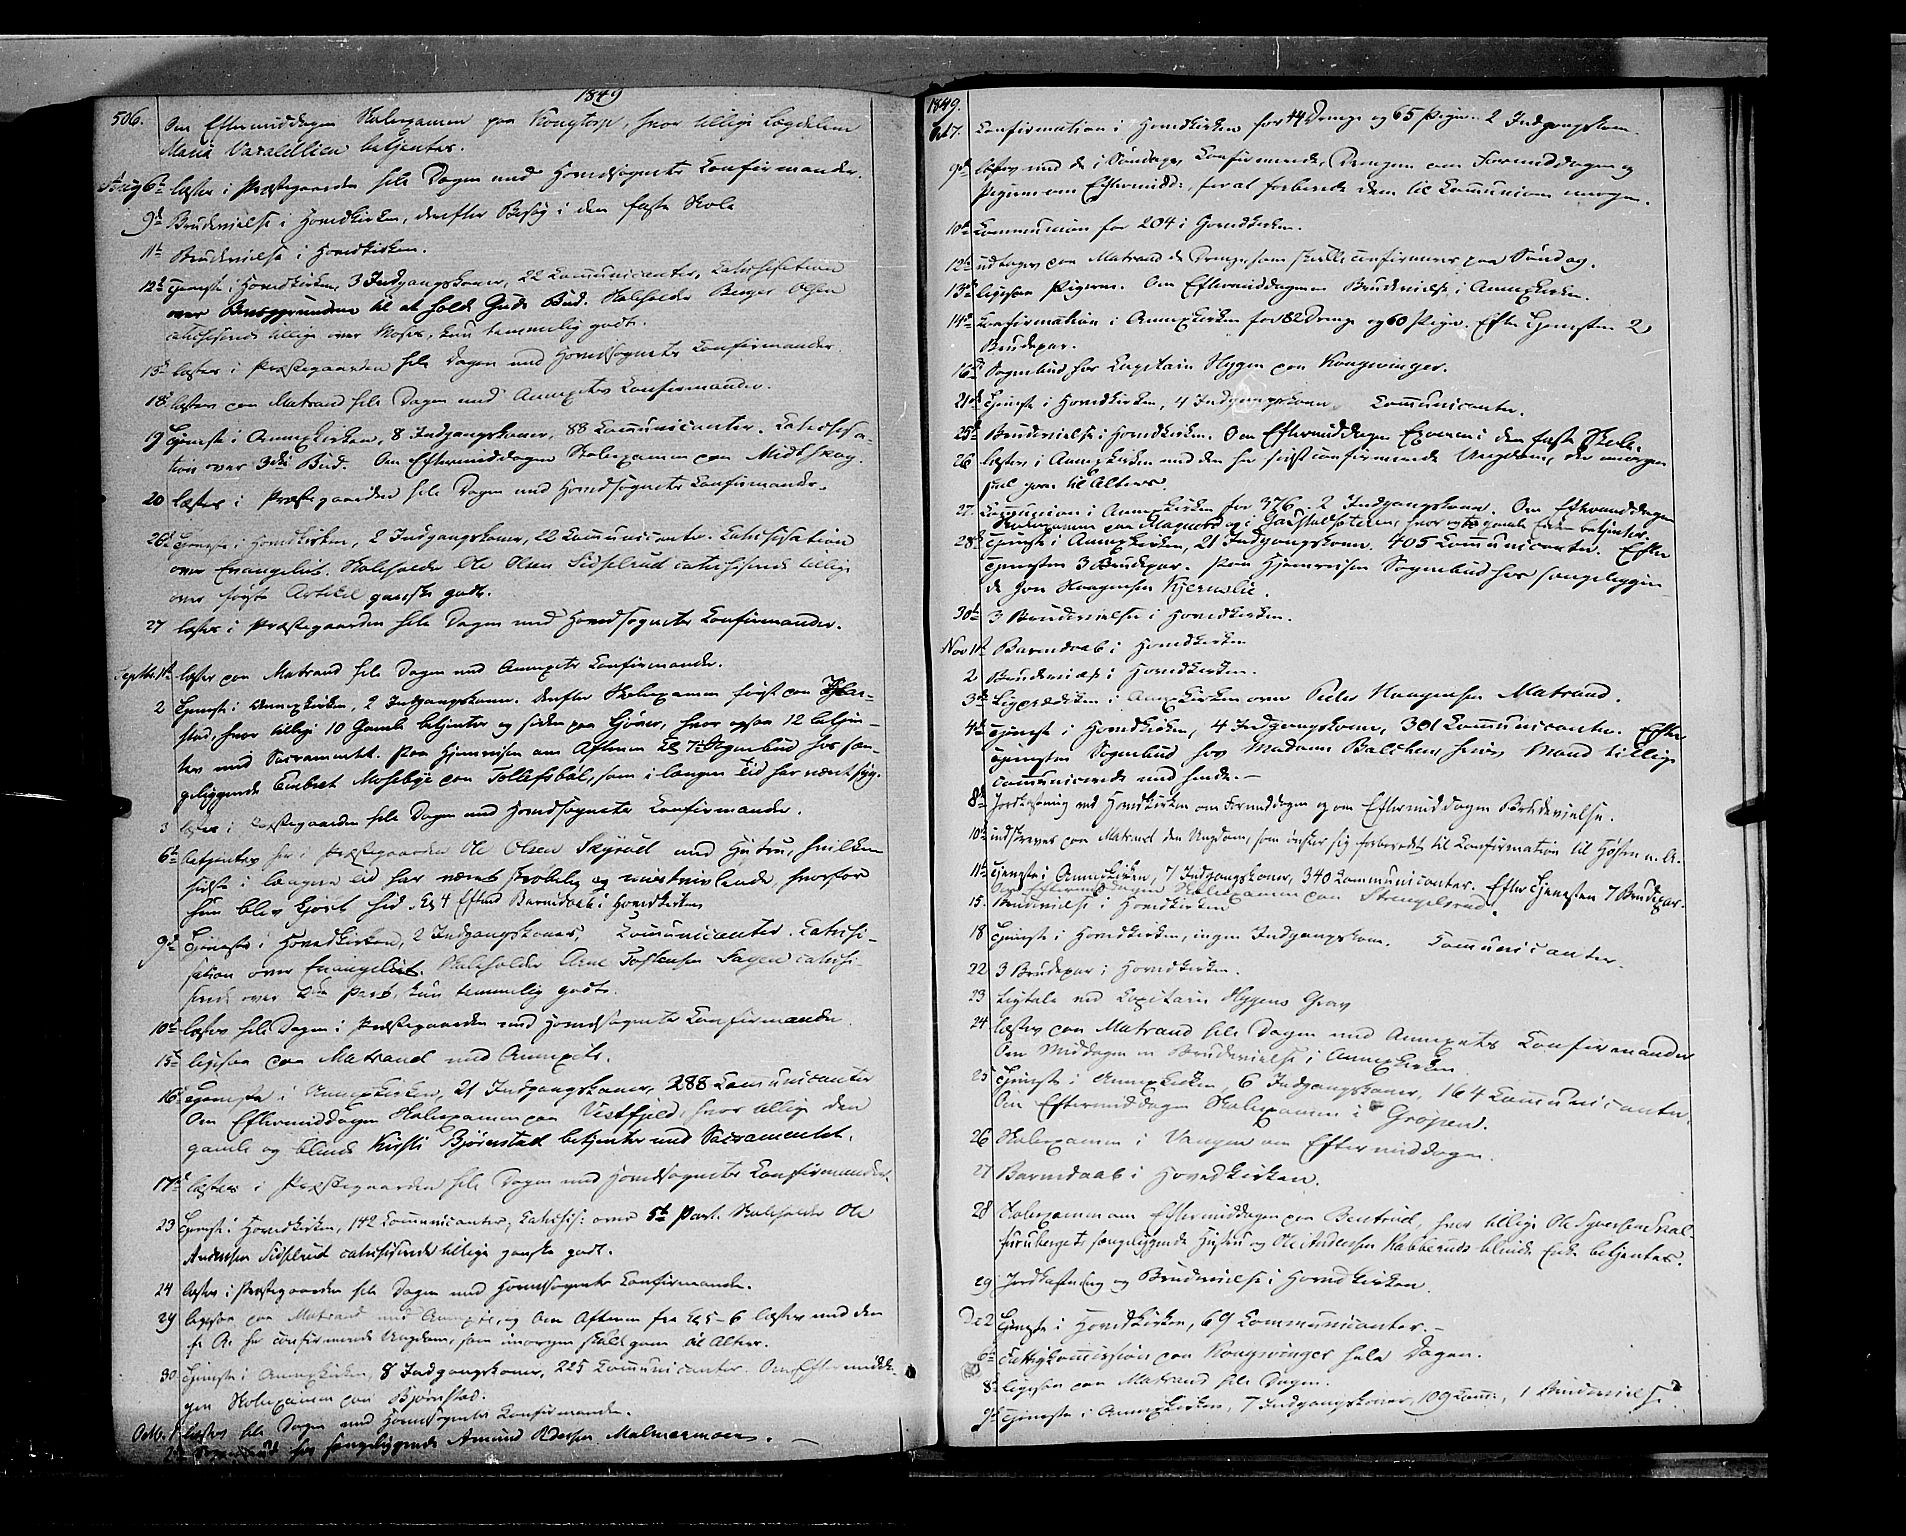 506. 1849
Om Eftermiddagen Skolexamen paa Kongtorp, hvor tillige Lægdslem
Maria Varaldlien betjentes.
Aug 6te læstes i Præstegaarden hele Dagen med Hovedsognets Confirmander.
9de Brudevielse i Hovedkirken, derefter Besøg i den faste Skole
11te Brudevielse i Hovedkirken.
12te Tjeneste i Hovedkirken, 3 Indgangskoner, 22 Communicanter, Catechisation
over Bevæggrundene til at holde Guds Bud. Skoleholder Berger Olsen
catechiserede tillige over Moses, kun temmelig godt.
13de læstes i Præstegaarden hele Dagen med Hovedsognets Confirmander
18de læstes paa Matrand hele Dagen med Annexets Confirmander.
19 Tjeneste i Annexkirken, 8 Indgangskoner, 88 Communicanter. Catechisa-
tion over 3die Bud. Om Eftermiddagen Skolexamen paa Midtskog.
20 læstes i Præstegaarden hele Dagen med Hovedsognets Confirmander.
26de Tjeneste i Hovedkirken, 2 Indgangskoner, 22 Communicanter. Catechisation
over Evangeliet. Skoleholder Ole Olsen Sidselrud catechiserede tillige
over første Artikel ganske godt.
27 læstes i Præstegaarden hele Dagen med Hovedsognets Confirmander.
Septbr. 1ste læstes paa Matrand hele Dagen med Annexets Confirmander.
2 Tjeneste i Annexkirken, 2 Indgangskoner. Derefter Skolexamen først paa
stad, hvor tillige 10 Gamle betjentes og siden paa Gjöner, hvor ogsaa 12 betjen-
tes med Sacramentet. Paa Hjemreisen om Aftenen Kl 7 Sognebud hos sen-
geliggende Embret Mosebye paa Tollefsböl, som i langen Tid har været syg.
3 læstes i Præstegaarden hele Dagen med Hovedsognets Confirmander.
6te betjentes her i Præstegaarden Ole Olsen Skyrud med Hustru, hvilken
sidste i længere Tid har været skröbelig og mistvivlende, hvorfor
hun blev kjört hid. Kl 4 Efterm Barnedaab i Hovedkirken
9de Tjeneste i Hovedkirken, 2 Indgangskoner, Communicanter. Catechi-
sation over Evangeliet. Skoleholder Arne Tostensen Sagen catechi-
serede over 2den Part, kun temmelig godt.
10de læstes hele Dagen i Præstegaarden med Hovedsognets Confirmander.
15de ligesaa paa Matrand med Annexets.
16de Tjeneste i Annexkirken, 21 Indgangskoner, 288 Communicanter
Om Eftermiddagen Skolexamen paa Vestfjeld, hvor tillige den
gamle og blinde Kirsti Björnstad betjentes med Sacramentet.
17de læstes i Præstegaarden hele Dagen med Hovedsognets Confirmander.
23 Tjeneste i Hovedkirken, 142 Communicanter, Catechis: over 5te Part. Skoleholder Ole
Andersen Sidselrud catechiserede tillige ganske godt.
24 læstes i Præstegaarden hele Dagen med Hovedsognets Confirmander.
29 ligesaa paa Matrand med Annexets, og om Aftenen fra Kl 5-6 læstes med den
f. A. her confirmerede Ungdom, som imorgen skal gaae til Alters.
30 Tjeneste i Annexkirken, 8 Indgangskoner, 225 Communicanter. Om Eftermidda-
gen Skolexamen paa Björnstad.
Octb. 1 læstes hele Dagen med Hovedsognets Confirmander.
Sognebud hos sengeliggende Amund Pedersen Malmermoen.
1849.
Oct 7. Confirmation i Hovedkirken for 44 Drenge og 65 Piger. 2 Indgangskoner.
9de læstes med de i Søndags Confirmerede, Drengene om Formiddagen og
Pigerne om Eftermidd:, for at forberede dem til Communion imorgen.
10de Communion for 204 i Hovedkirken.
12te udtoges paa Matrand de Drenge, som skulle confirmeres paa Søndag.
13de ligesaa Pigerne. Om Eftermiddagen Brudevielse i Annexkirken.
14de Confirmation i Annexkirken for 82 Drenge og 60 Piger. Efter Tjenesten 2
Brudepar.
16de Sognebud hos Capitain Hygen paa Kongsvinger.
21de Tjeneste i Hovedkirken, 4 Indgangskoner Communicanter.
25de Brudevielse i Hovedkirken. Om Eftermiddagen Examen i den faste Skole.
26 læstes i Annexkirken med den her sidst confirmerede Ungdom, der imorgen
skal gaae til Alters.
27. Communion i Annexkirken for 376. 2 Indgangskoner. Om Eftermiddagen
Skolexamen paa og i hvor og gamle betjentes.
28de Tjeneste i Annexkirken, 21 Indgangskoner. 405 Communicanter. Efter
Tjenesten 3 Brudepar. Paa Hjemreisen Sognebud hos sengeliggen-
de Jon Haagensen Kjernslie.
30te 3 Brudevielser i Hovedkirken.
Nov 1ste Barnedaab i Hovedkirken
2 Brudevielse i Hovedkirken.
3de Ligprædiken i Annexkirken over Peder Haagensen Matrand.
4de Tjeneste i Hovedkirken, 4 Indgangskoner, 301 Communicanter. Efter
Tjenesten Sognebud hos Madame Balchen, hvis Mand tillige
communicerede med hende.-
8de Jordfæstning ved Hovedkirken om Formiddagen og om Eftermiddagen Brudevielse.
10de indskreves paa Matrand den Ungdom, som ønsker sig forberedet til Confirmation til Høsten n. A.
11te Tjeneste i Annexkirken, 7 Indgangskoner, 340 Communicanter. Efter Tjenesten 7 Brudepar.
Om Eftermiddagen Skolexamen paa Strengelsrud.
15. Brudevielse i Hovedkirken
18 Tjeneste i Hovedkirken, ingen Indgangskone. Communicanter.
22 3 Brudepar i Hovedkirken.
23 Ligtale ved Capitain Hygens Grav
24 læstes paa Matrand hele Dagen med Annexets Confirmander
Om Middagen en Brudevielse i Annexkirken
25 Tjeneste i Annexkirken 6 Indgangskoner, 164 Communicanter.
Om Eftermiddagen Skolexamen i Gropen.
26 Skolexamen i Vangen om Eftermiddagen.
27 Barnedaab i Hovedkirken.
28 Skolexamen om Eftermiddagen paa Bentrud, hvor tillige Ole Syversen
Furubergets sengeliggende Hustru og Ole Andersen Rabberuds blinde Enke betjentes.
29 Jordfæstning og Brudevielse i Hovedkirken.
Dec 2 Tjeneste i Hovedkirken, 69 Communicanter.-
6te Fattigcommission paa Kongsvinger hele Dagen.
8de ligesaa paa Matrand hele Dagen.
9de Tjeneste i Annexkirken, 7 Indgangskoner, 109 Comm:, 1 Brudevielse